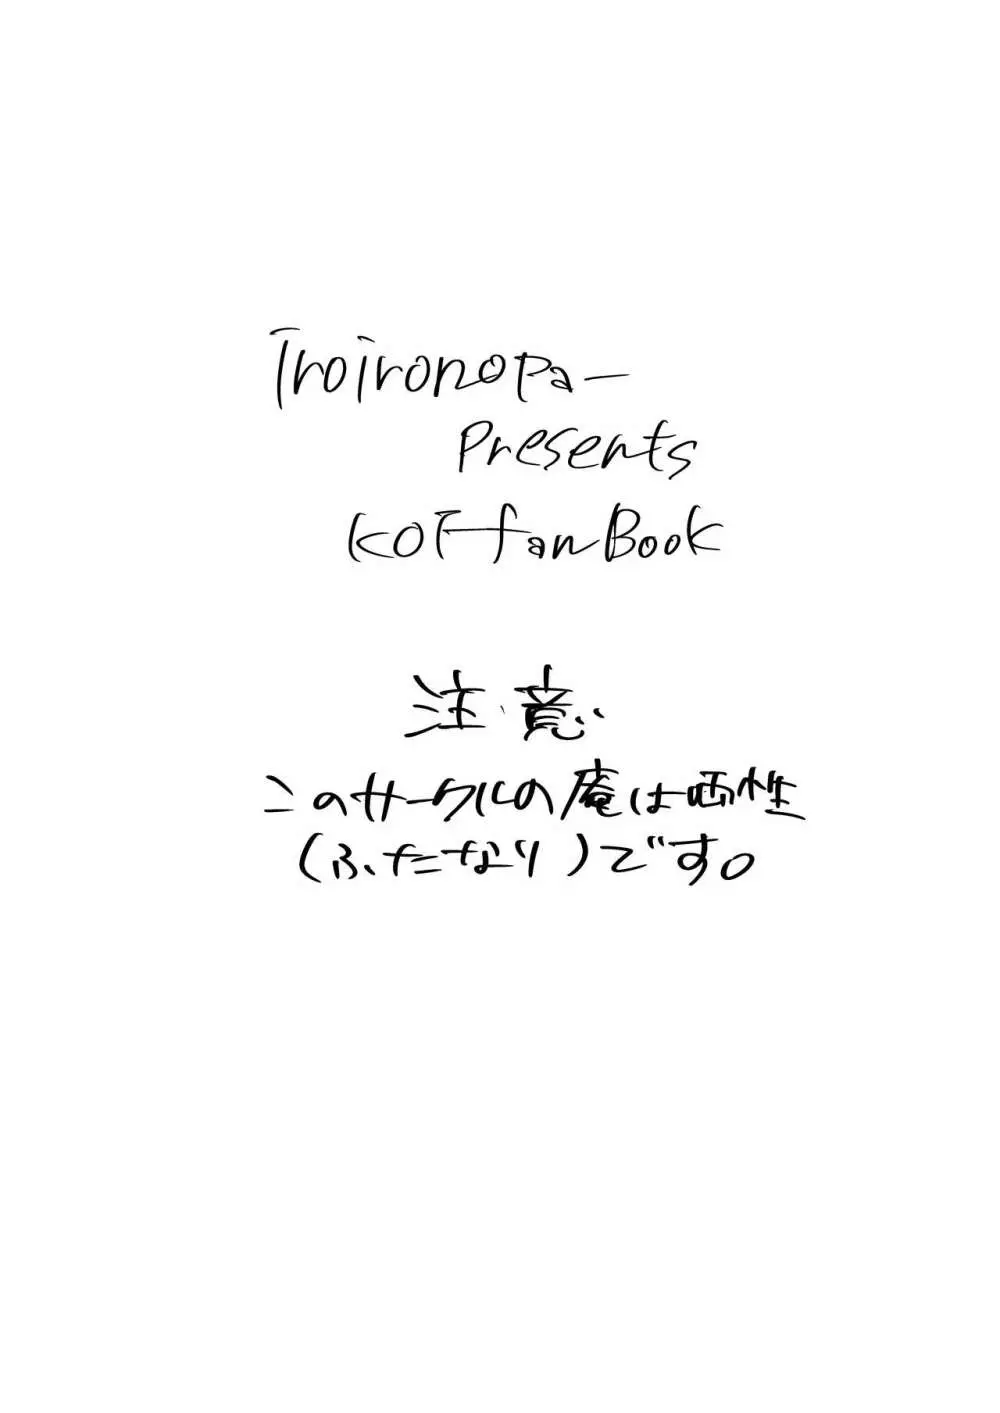 IroIronoPa—
Presents
KOF fan Book
注意
このサークルの庵は両性
(ふたなり)です。